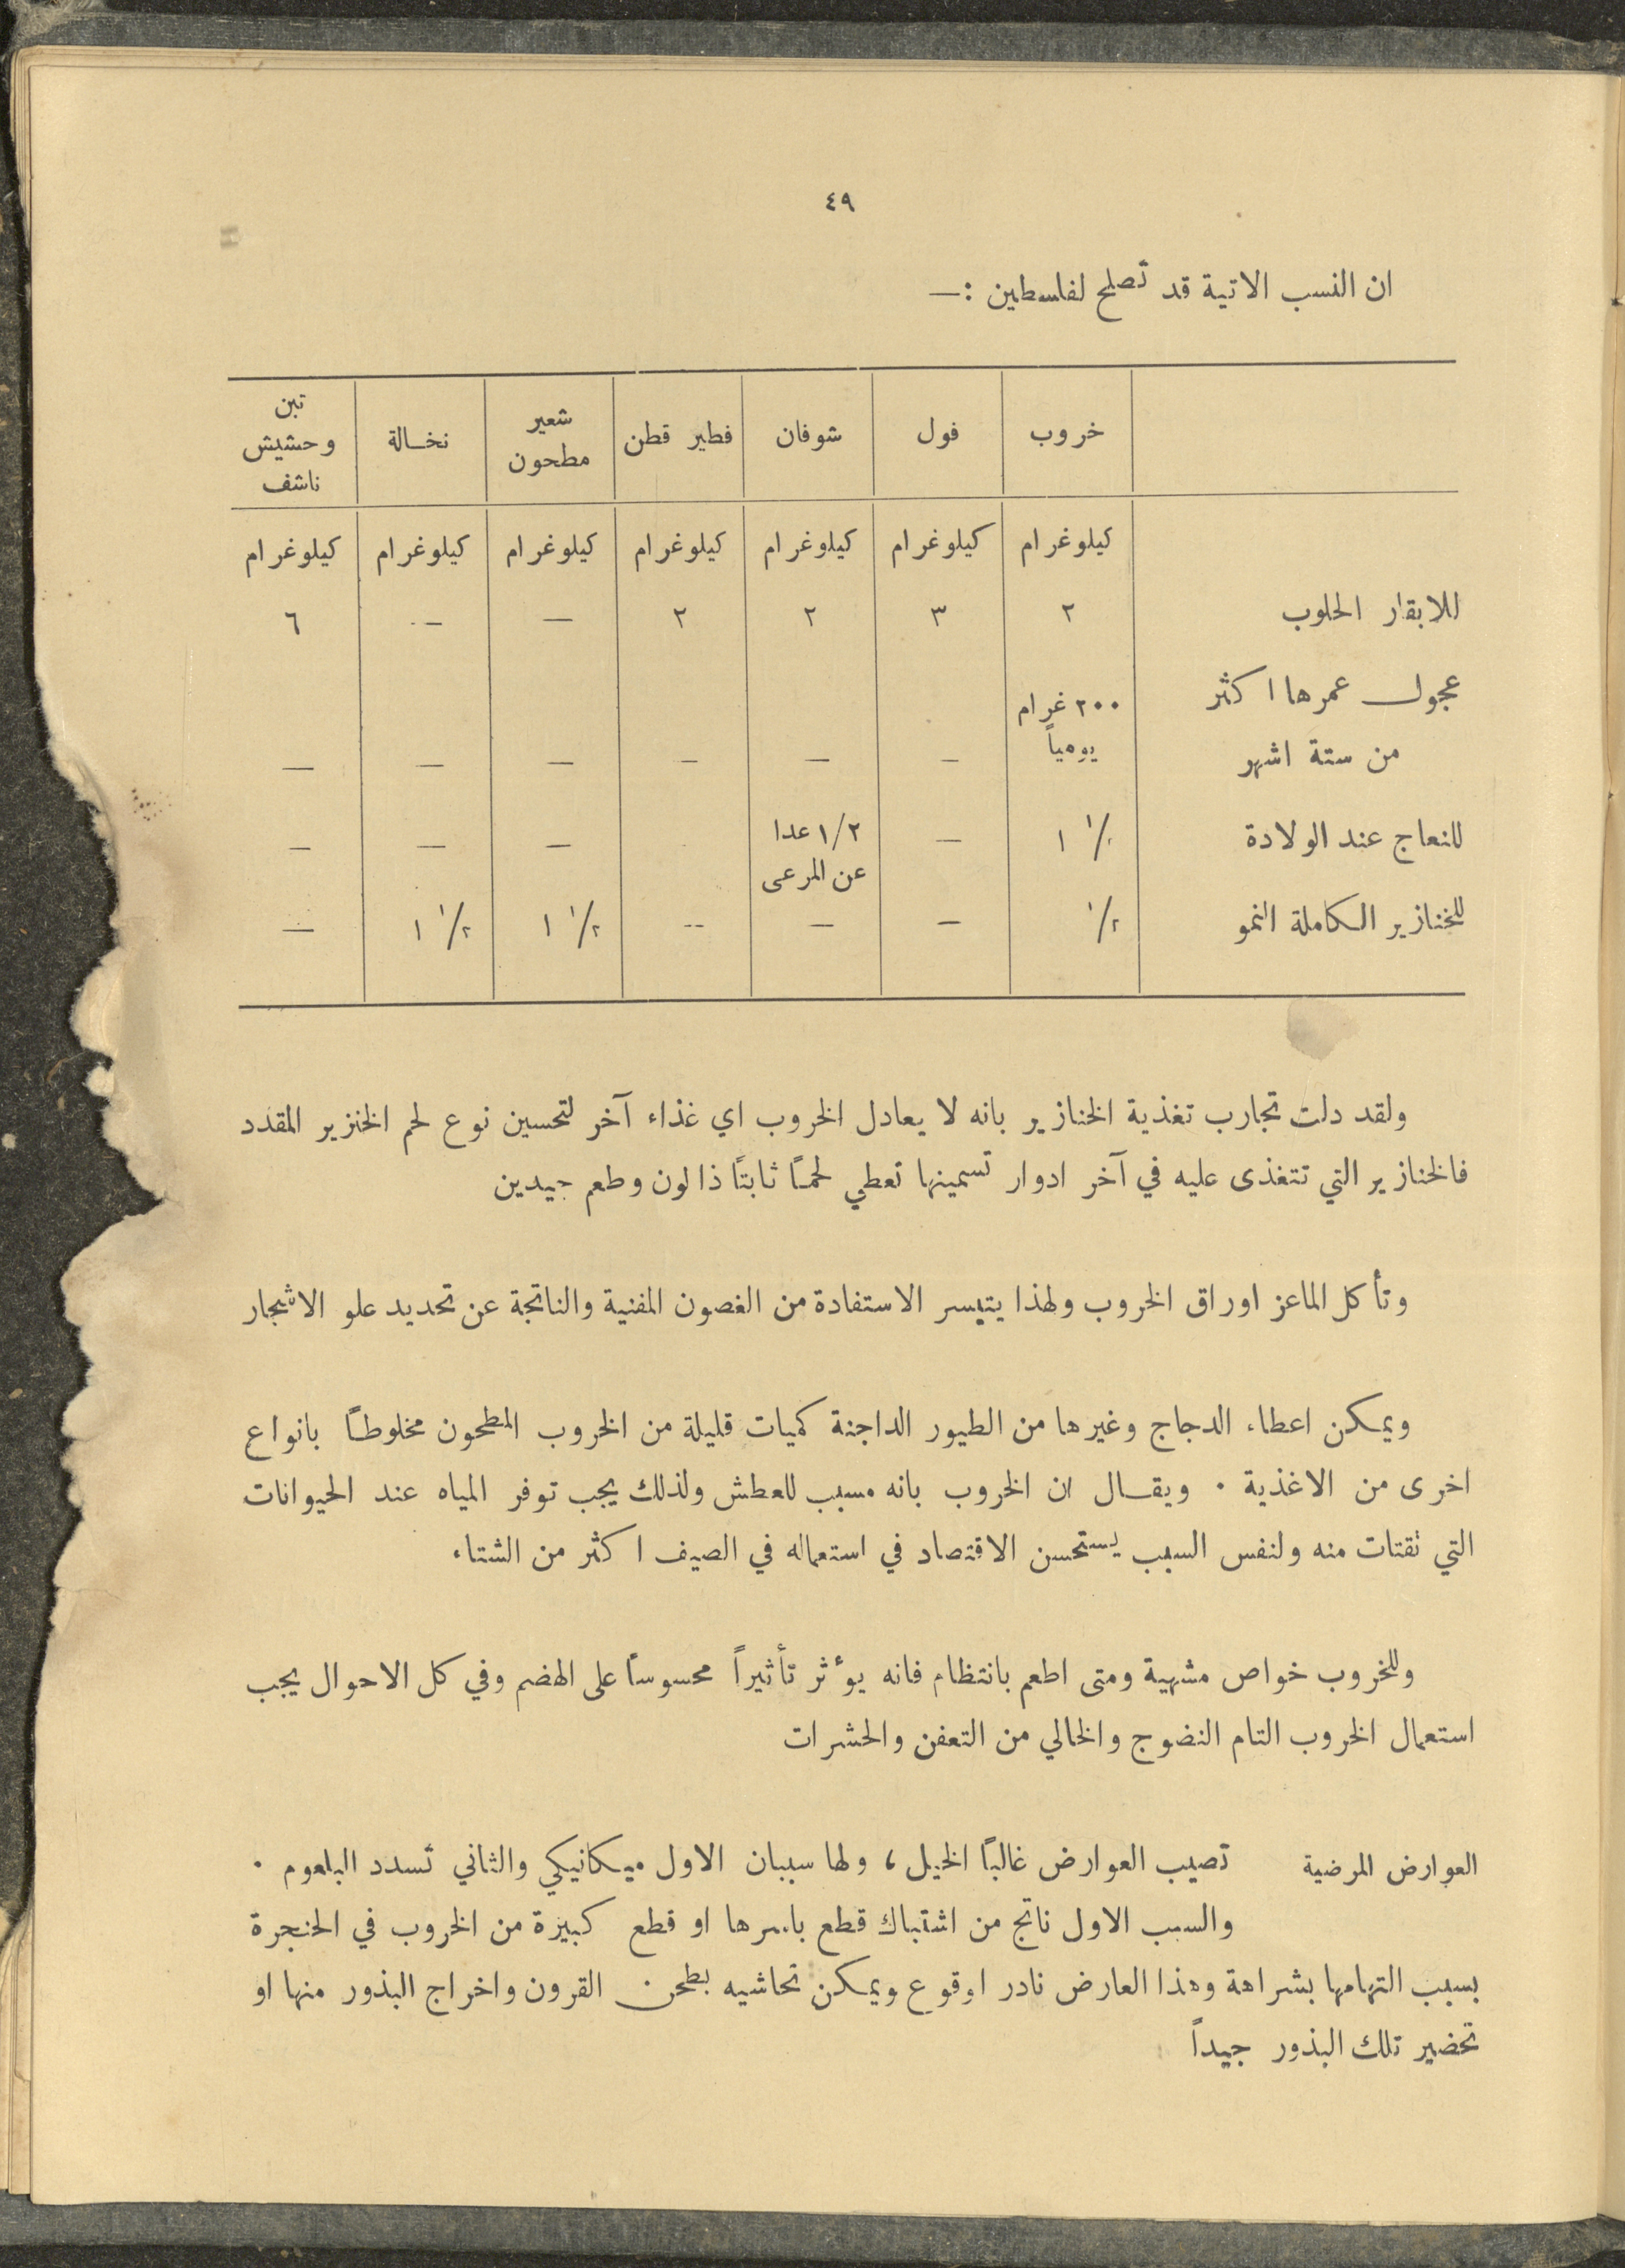 ٤٩
ان النسب الاتية قد تصلح لفلسطين :—
خروب | فول | شوفان | فطير قطن | شعير مطحون | نخالة | تبن وحشيش ناشف
كيلوغرام | كيلوغرام | كيلوغرام | كيلوغرام | كيلوغرام | كيلوغرام | كيلوغرام
للابقار الحلوب | ٢ | ٣ | ٢ | ٢ | — | — | ٦
عجول عمرها اكثر
من ستة اشهر | ٢٠٠ غرام يومياً | — | — | — | — | — | —
للنعاج عند الولادة | ١ ١/ | — | ١/٢ عدا عن المرعى | | — | — | —
للخنازير الكاملة النمو | ١/٢ | — | — | -- | ١ ١/٢ | ١ ١/٢ | —
ولقد دلت تجارب تغذية الخنازير بانه لا يعادل الخروب اي غذاء آخر لتحسين نوع لحم الخنزير المقدد
فالخنازير التي تتغذى عليه في آخر ادوار تسمينها تعطي لحمًا ثابتًا ذا لون وطعم جيدين
وتأكل الماعز اوراق الخروب ولهذا يتيسر الاستفادة من الغصون المفنية والناتجة عن تحديد علو الاشجار
ويمكن اعطاء الدجاج وغيرها من الطيور الداجنة كميات قليلة من الخروب المطحون مخلوطًا بانواع
اخرى من الاغذية . ويقال ان الخروب بانه مسبب للعطش ولذلك يجب توفر المياه عند الحيوانات
التي تقتات منه ولنفس السبب يستحسن الاقتصاد في استعماله في الصيف اكثر من الشتاء
وللخروب خواص مشهية ومتى اطعم بانتظام فانه يؤثر تأثيراً محسوسًا على الهضم وفي كل الاحوال يجب
استعمال الخروب التام النضوج والخالي من التعفن والحشرات
العوارض المرضية تصيب العوارض غالبًا الخيل ، ولها سببان الاول ميكانيكي والثاني تسدد البلعوم .
والسبب الاول ناتج من اشتباك قطع باسرها او قطع كبيرة من الخروب في الحنجرة
بسبب التهامها بشراهة وهذا العارض نادر اوقوع ويمكن تحاشيه بطحن القرون واخراج البذور منها او
تحضير تلك البذور جيداً